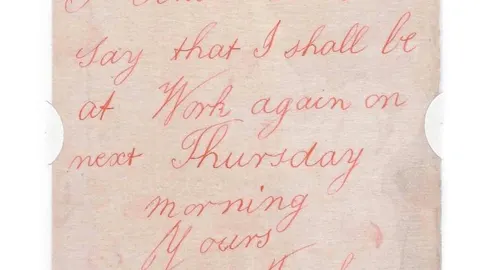 say that I shall be
at Work again on
next Thursday
morning
Yours